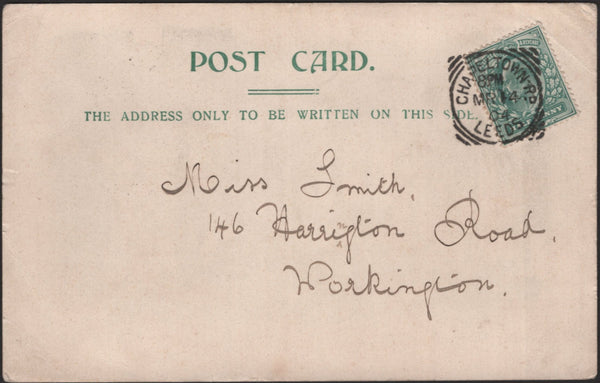 POST CARD.
THE ADDRESS ONLY TO BE WRITTEN ON THIS SIDE.
CHAPELTOWN-RD
8PM
MR 14
04
LEEDS
Miss Smith,
146 Harrington Road,
Workington.